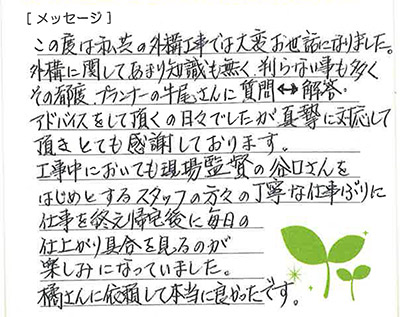 [メッセージ]
この度は私共の外構工事では大変お世話になりました。
外構に関してあまり知識も無く、判らない事も多く
その都度、プランナーの牛尾さんに質問↔解答・
アドバイスをして頂く日々でしたが真摯に対応して
頂きとても感謝しております。
工事中においても現場監督の谷口さんを
はじめとするスタッフの方々の丁寧な仕事ぶりに
仕事を終え帰宅後に毎日の
仕上がり具合を見るのが
楽しみになっていました。
橘さんに依頼して本当に良かったです。